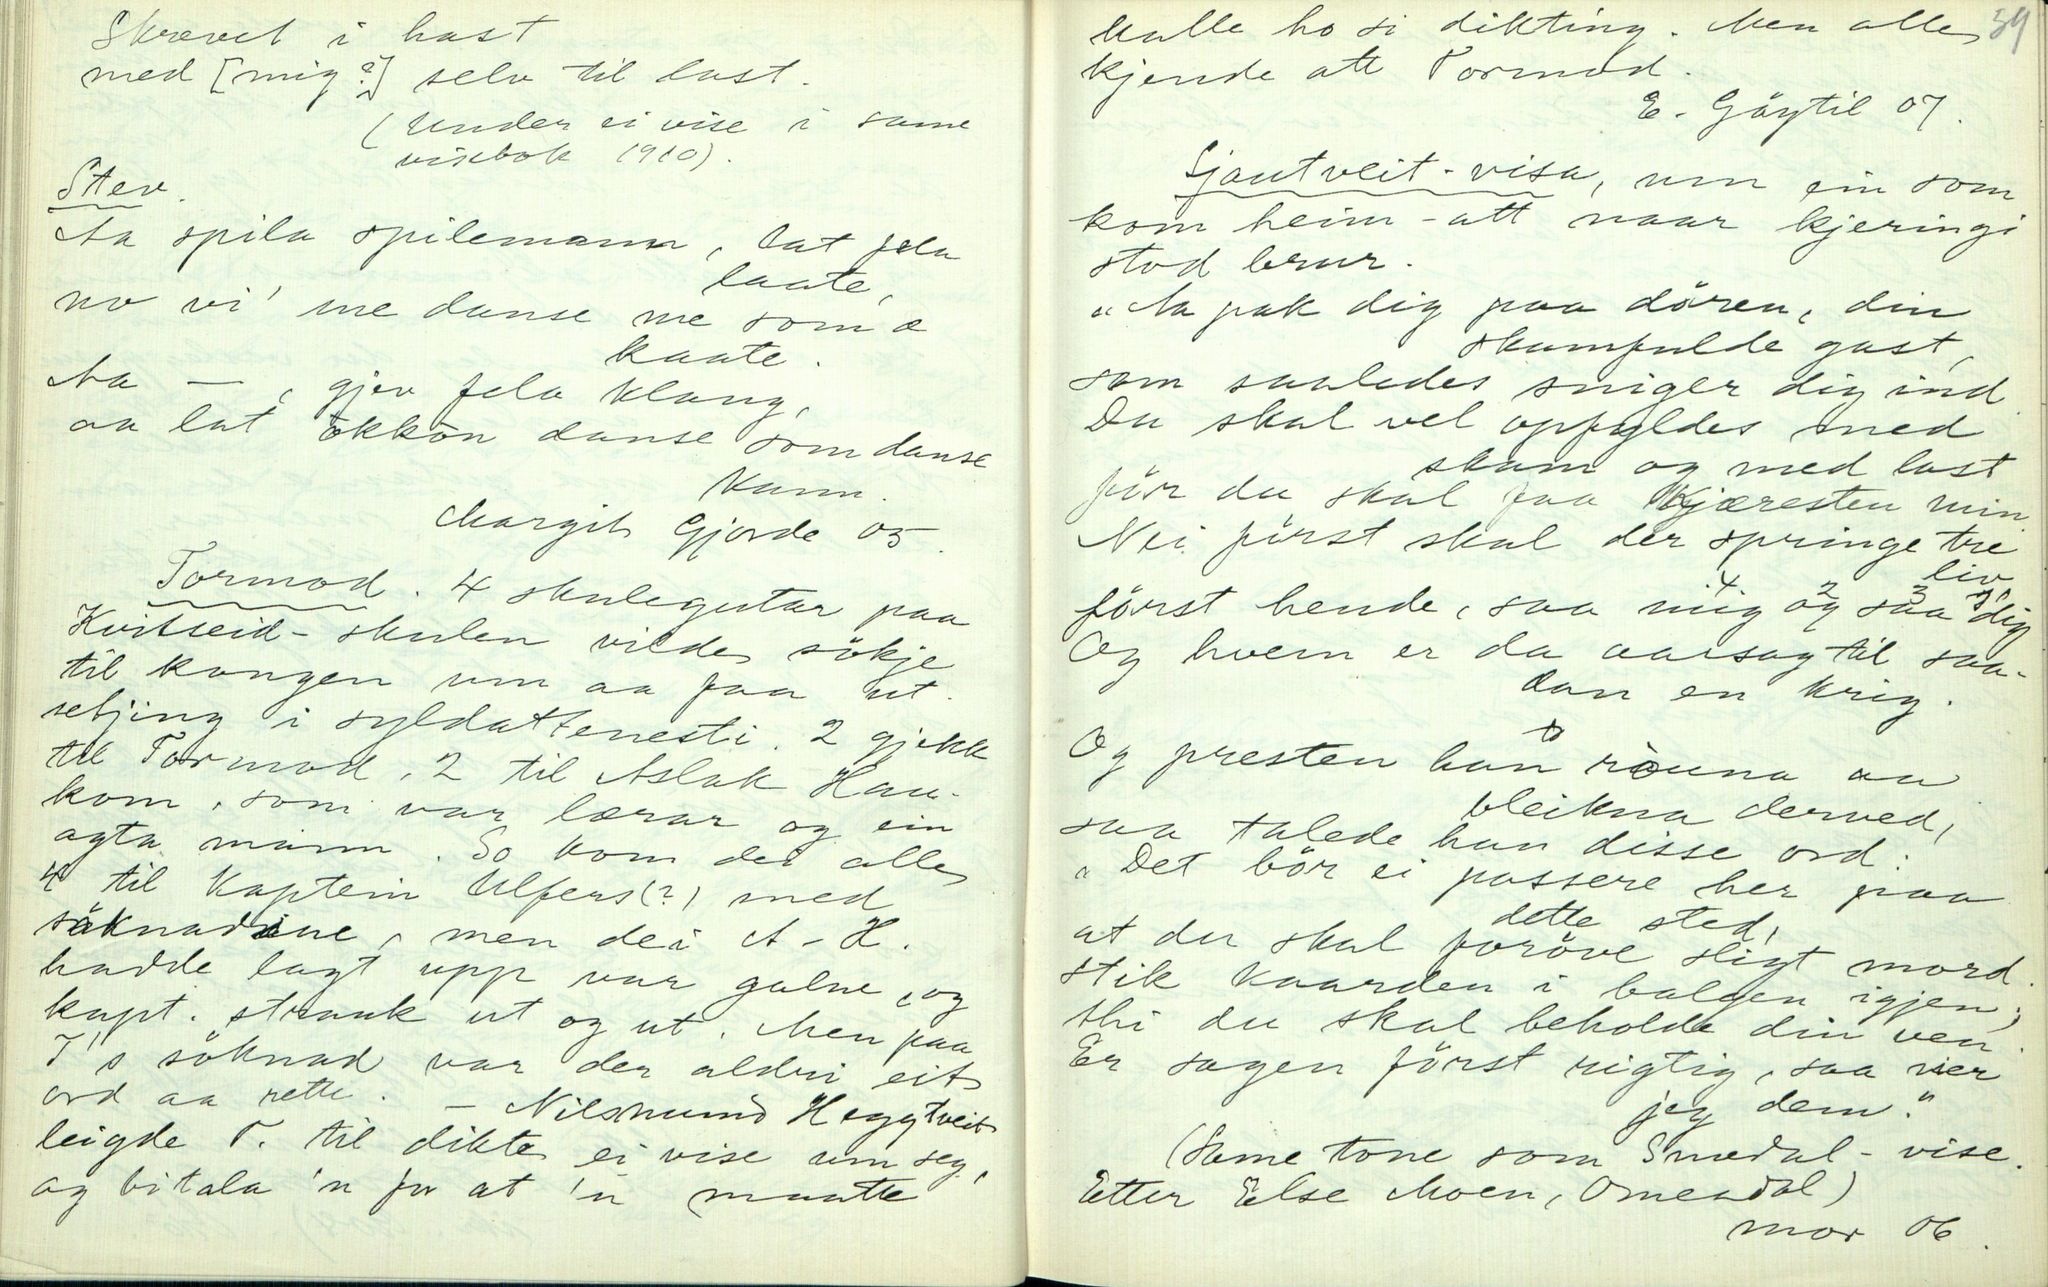 Skrevet i hast
med [mig?] selv til last.
(Under ei vise i same
visebok 1910).
Stev.
Aa spila spilemann, lat fela
laate,
no vi' me danse me som æ
kaate.
Aa — , gjev fela klang,
aa lat økkøn danse som danse
kann.
Margit Gjorde 05.
Tormod. 4 skulegutar paa
Kvitseid-skulen vilde sökje
til kongen um aa faa ut-
setjing i syldattenesti. 2 gjekk
til Tormod, 2 til Aslak Hau-
kom, som var lærar og ein
agta mann. So kom dei alle
4 til Kaptein Ulfers(?) med
söknadine, men dei A-H.
hadde lagt upp var galne, og
kapt. strauk ut og ut. Men paa
T's söknad var der aldri eit
ord aa rette. – Nilsmund Heggtveit
leigde T. til dikte ei vise um seg,
og bitala 'n for at 'n maatte
39
kalle ho si dikting. Men alle
kjende att Tormod.
E. Göytil 07.
Sjautveit-visa, um ein som
kom heim-att naar kjeringi
stod brur.
"Aa pak dig paa dören, din
skamfulde gast,
som saaledes sniger dig ind.
Du skal vel opfyldes med
skam og med last
för du skal faa Kjæresten min.
Nei först skal der springe tre
liv
först hende, saa mig og saa dig
4 2 3 1
Og hvem er da aarsag til saa-
dan en krig.
Og presten han rouna aa
bleikna derved,
saa talede han disse ord.
"Det bör ei passere her paa
dette sted,
at du skal foröve sligt mord.
Stik kaarden i balgen igjen;
thi du skal beholde din ven.
Er sagen först rigtig, saa vier
jeg dem."
(Same tone som Smedal-vise.
Etter Else Moen, Omesdal)
mor 06.